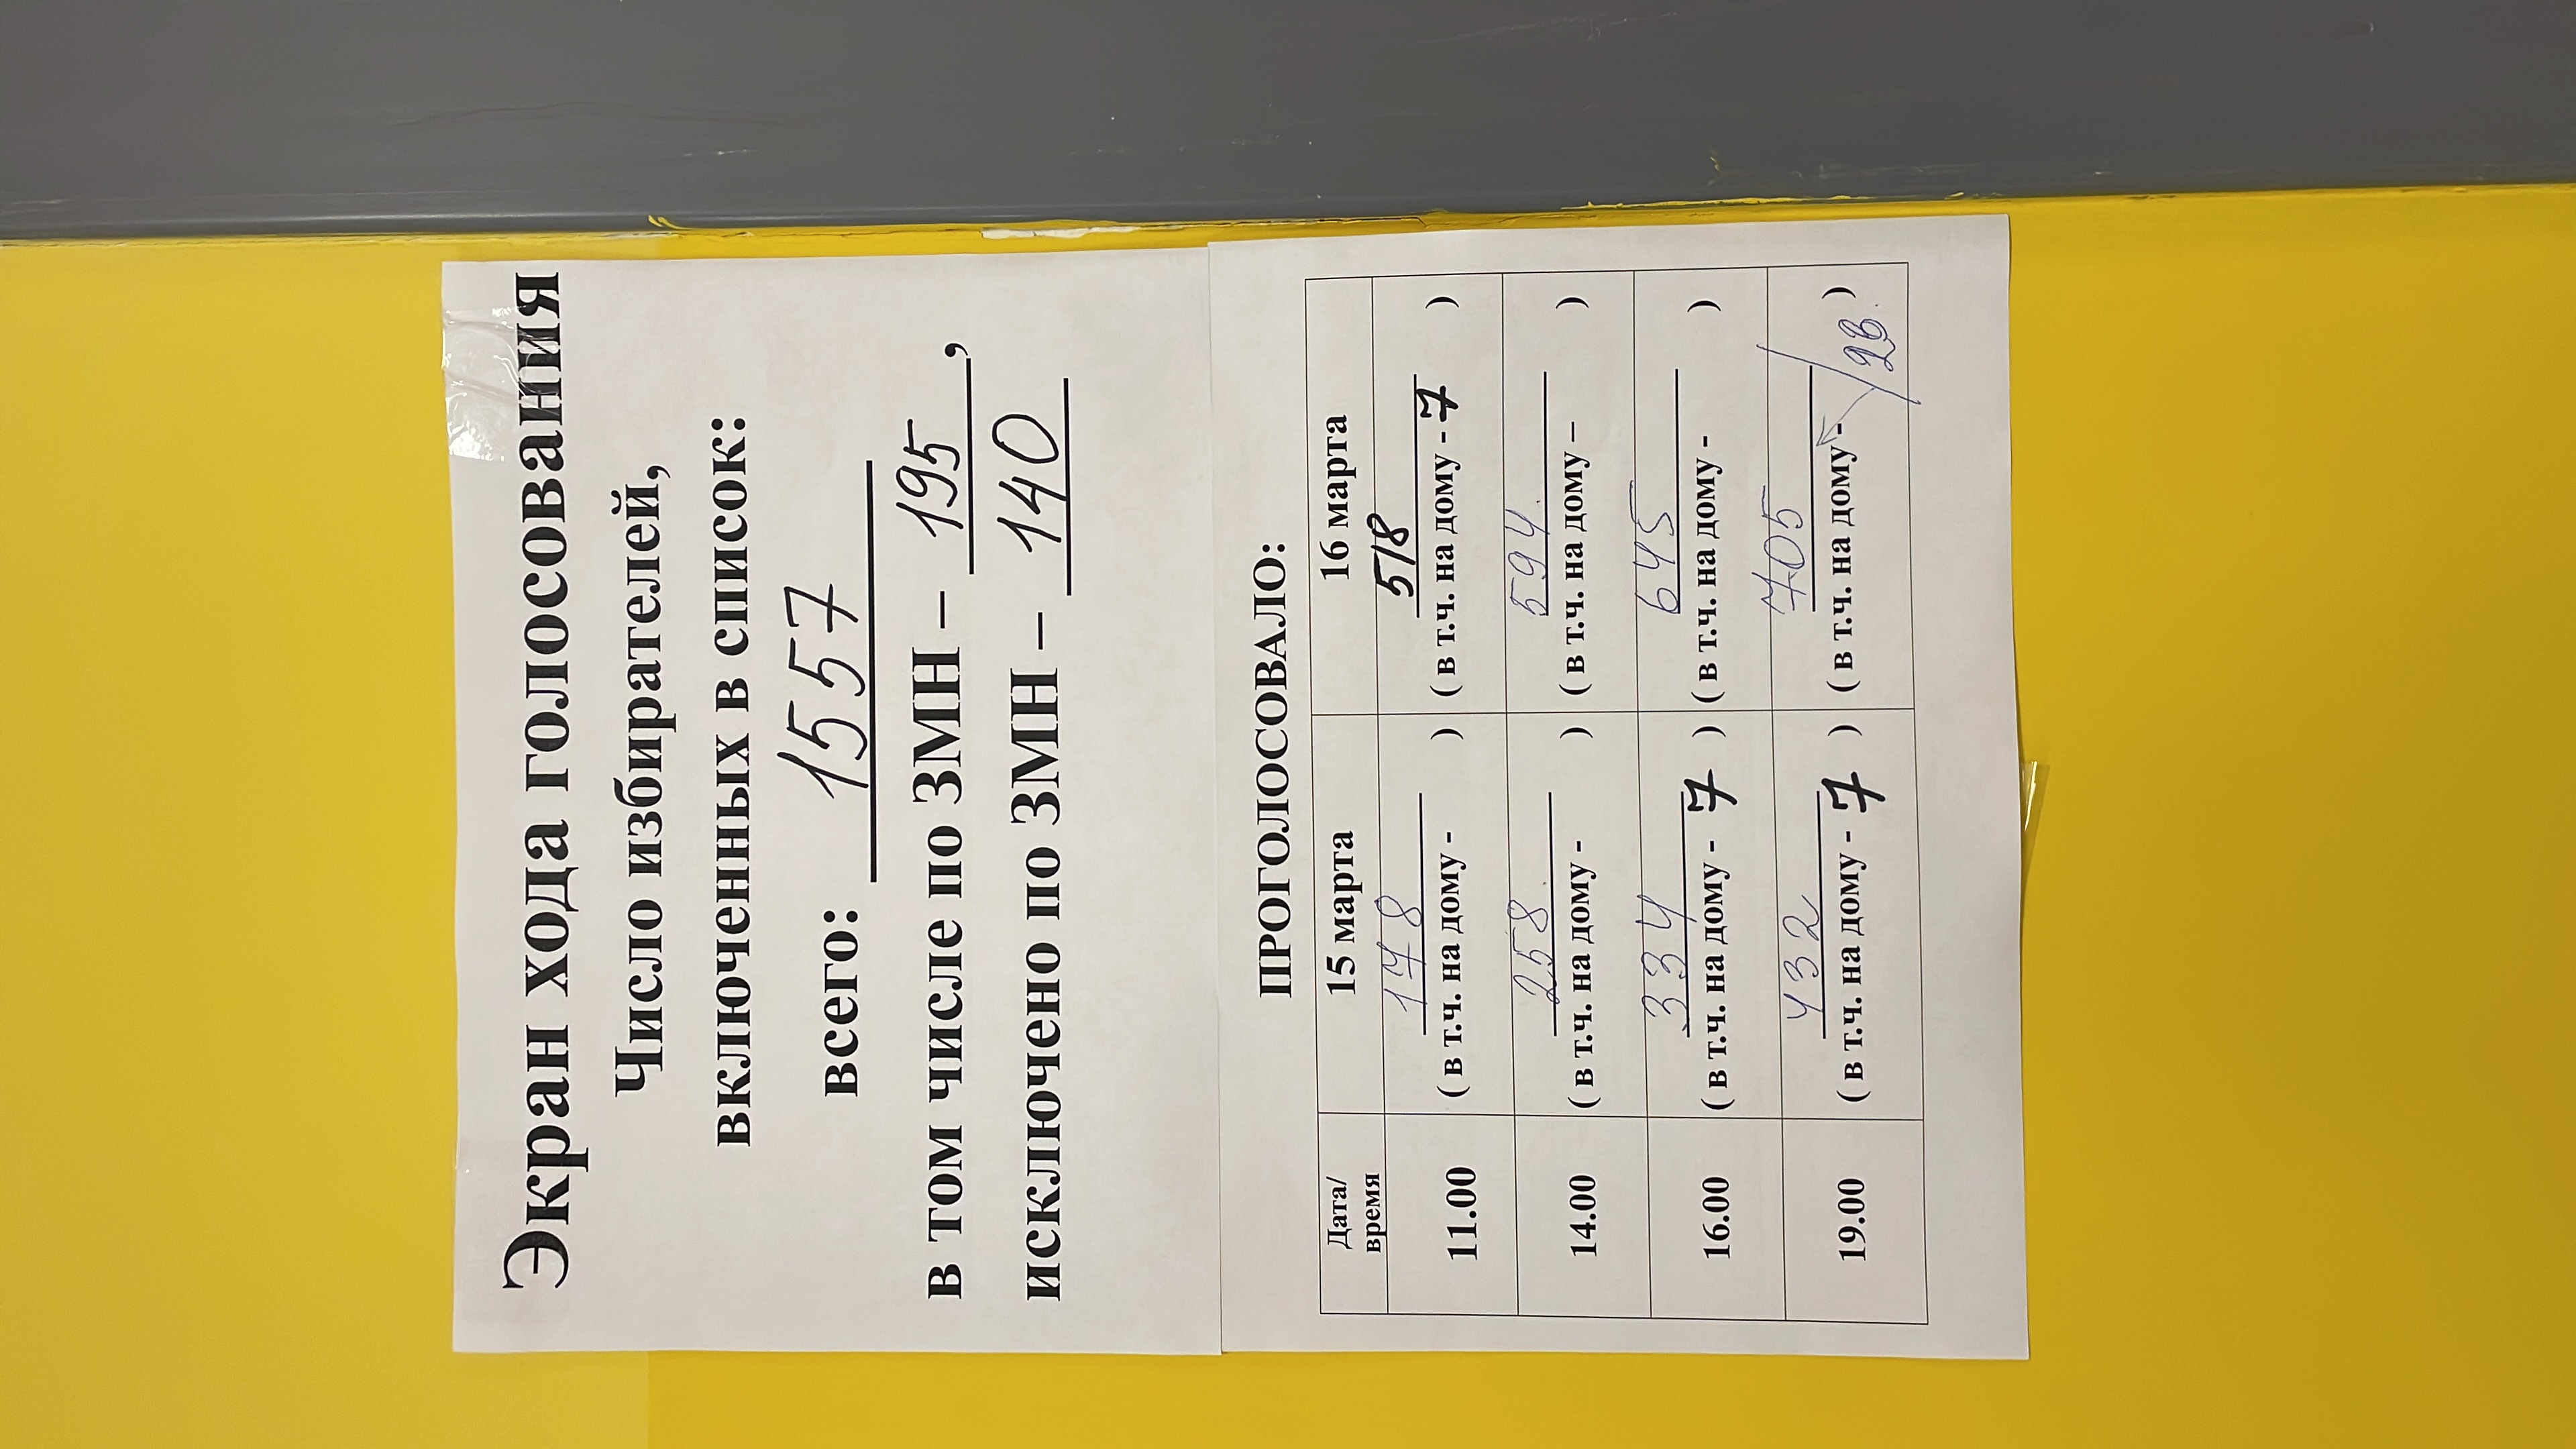 Экран хода голосования
Число избирателей,
включенных в список:
всего: 1557
в том числе по ЗМН – 195,
исключено по ЗМН – 140
ПРОГОЛОСОВАЛО:
Дата/ время 15 марта 16 марта
11.00 148 518
( в т.ч. на дому - ) ( в т.ч. на дому - 7 )
14.00 258 594
( в т.ч. на дому - ) ( в т.ч. на дому – )
16.00 334 645
( в т.ч. на дому - 7 ) ( в т.ч. на дому - )
19.00 432 705
( в т.ч. на дому - 7 ) ( в т.ч. на дому - )